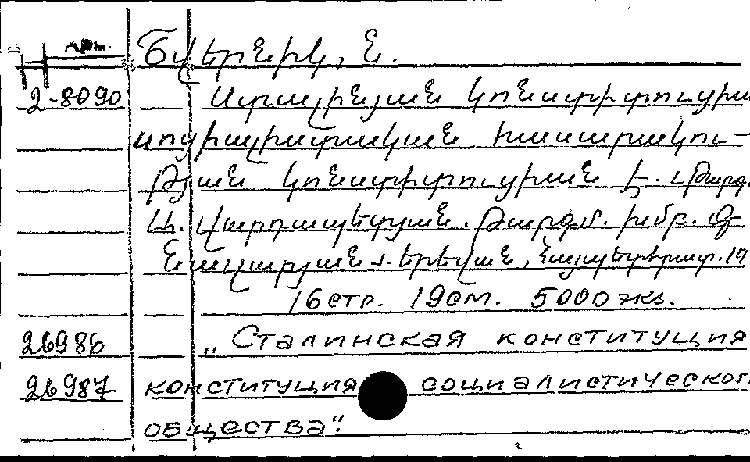 Շվերնիկ, Ն.
2-8090 Ստալինյան կոնստիտուցիա
սոցիալիստական հասարակու-
թյան կոնստիտուցիան է. Թարգ.
Ա. Վարդապետյան. Թարգմ. խմբ. Գ
Երևան, Հայպետհրատ.
16 стр. 19 см. 5000 экз.
26986 „Сталинская конституция
26987 конституция социалистического
общества".